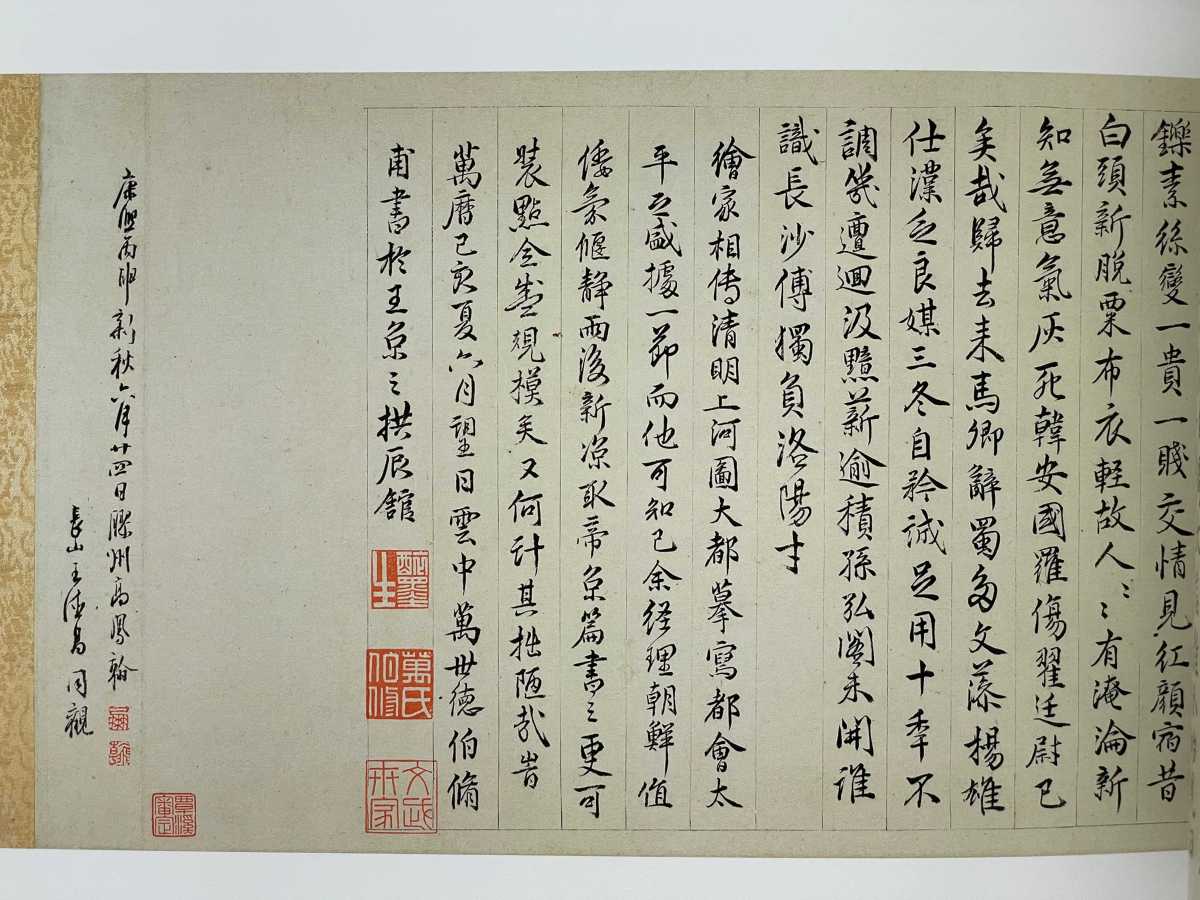 鑠素絲變一貴一賤交情見紅顏宿昔
白頭新脫粟布衣輕故人〻有淹淪新
知無意氣灰死韓安國羅傷翟廷尉已
矣哉歸去来馬卿辭蜀多文藻揚雄
仕漢乏良媒三冬自矜誠足用十年不
調幾邅迴汲黯薪逾積孫弘閣未開誰
識長沙傅獨負洛陽才
繪家相傳清明上河圖大都摹寫都會太
平之盛據一節而他可知已余经理朝鮮值
倭氛偃静雨後新凉取帝京篇書之更可
裝點全盛規模矣又何计其拙陋哉旹
萬曆己亥夏六月望日雲中萬世德伯脩
甫書於王京之拱辰館
萬氏伯脩
文武丗家
康熙丙申新秋六月廿四日膠州高鳳翰
長山王德昌同觀
覃溪審定